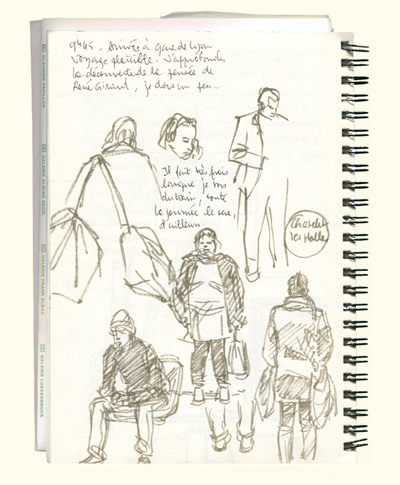 9h45. Arrivée à gare de Lyon
Voyage paisible. J'approfondis
la découverte de la pensée de
René Girard, je dors un peu...
Il fait très frais
lorsque je sors
du train, toute
la journée le sera,
d'ailleurs
Chatelet
les Halles
GALERIE LOEVENBRUCK